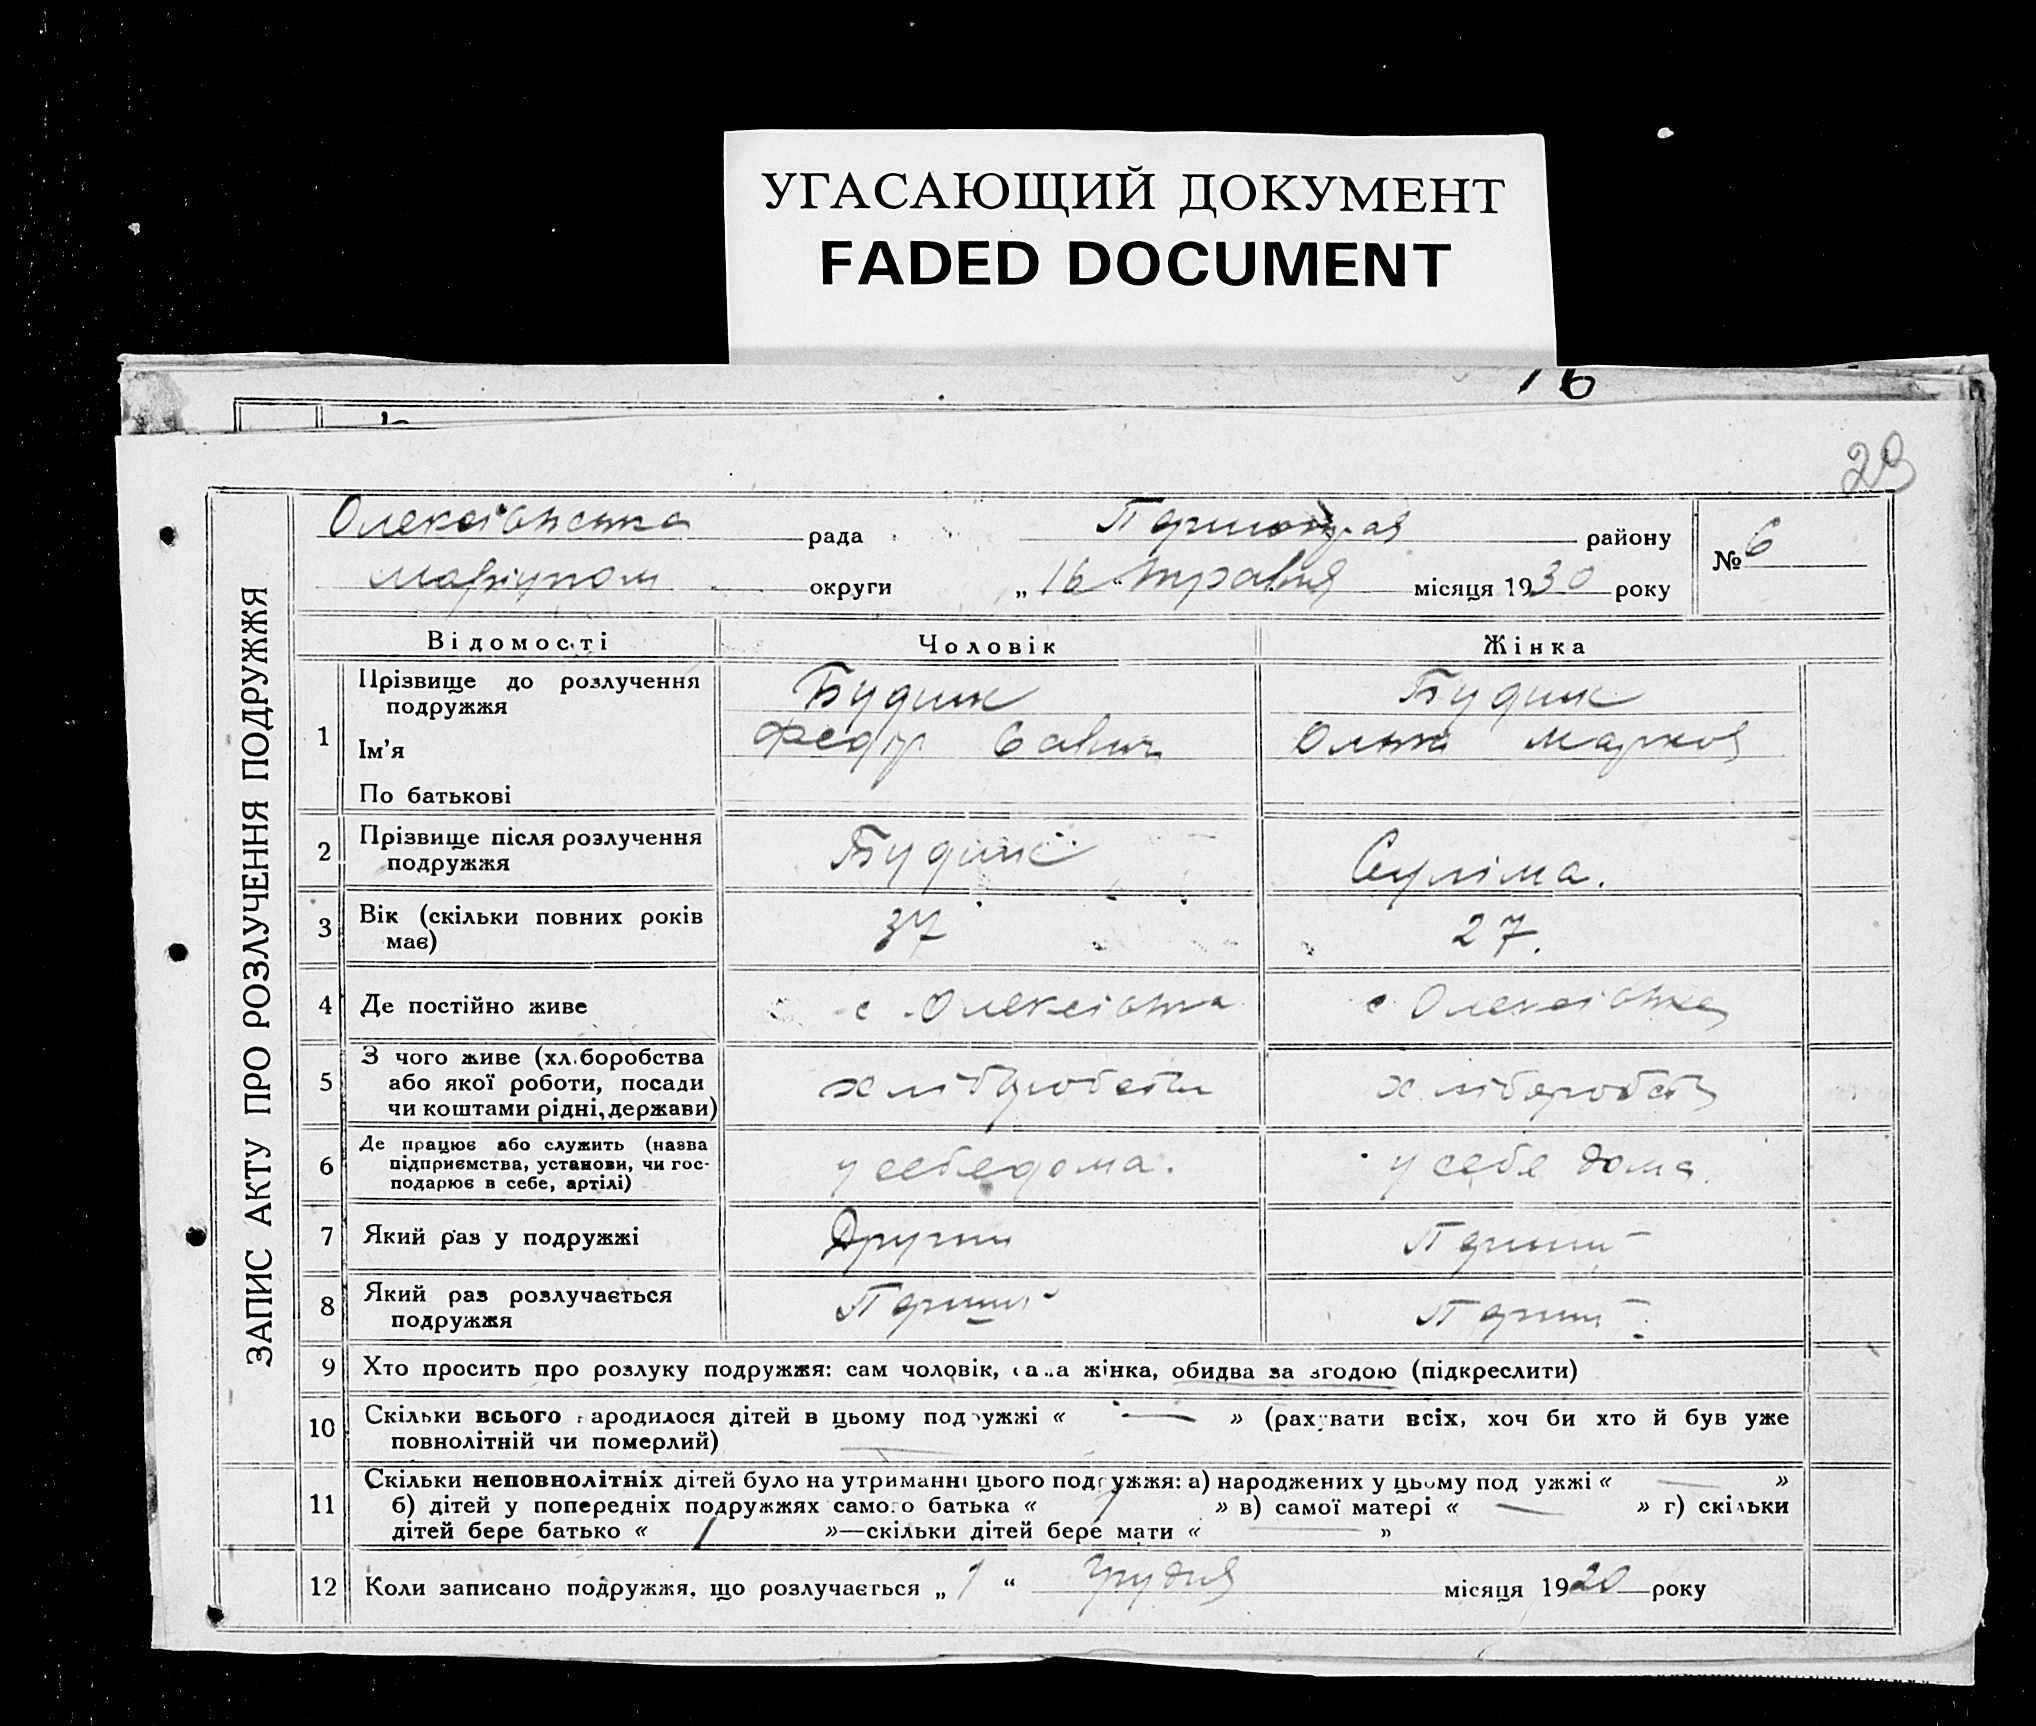 УГАСАЮЩИЙ ДОКУМЕНТ
FADED DOCUMENT
16
29
ЗАПИС АКТУ ПРО РОЗЛУЧЕННЯ ПОДРУЖЖЯ
Олексіївська рада району
Маріупол округи „ 16 “ травня місяця 1930 року
№ 6
Відомості Чоловік Жінка
1 Прізвище до розлучення подружжя Будник Будник
Ім’я Федір Савич Ольга Марков
По батькові
2 Прізвище після розлучення подружжя Будник Суліма.
3 Вік (скільки повних років має) 37 27.
4 Де постійно живе с Олексіївка с Олексіївка
5 З чого живе (хл.боробства або якої роботи, посади чи коштами рідні, держави) хліборобств хліборобств
6 Де працює або служить (назва підприємства, установи, чи господарює в себе, артілі) у себе дома. у себе дома.
7 Який раз у подружжі Другий Перший
8 Який раз розлучається подружжя Перший Перший
9 Хто просить про розлуку подружжя: сам чоловік, сама жінка, обидва за згодою (підкреслити)
10 Скільки всього народилося дітей в цьому подружжі « — » (рахувати всіх, хоч би хто й був уже
повнолітній чи померлий)
11 Скільки неповнолітніх дітей було на утриманні цього подружжя: а) народжених у цьому подружжі « — »
б) дітей у попередніх подружжях самого батька « 1 » в) самої матері « — » г) скільки
дітей бере батько « 1 »—скільки дітей бере мати « — »
12 Коли записано подружжя, що розлучається „ 1 “ грудня місяця 1920 року